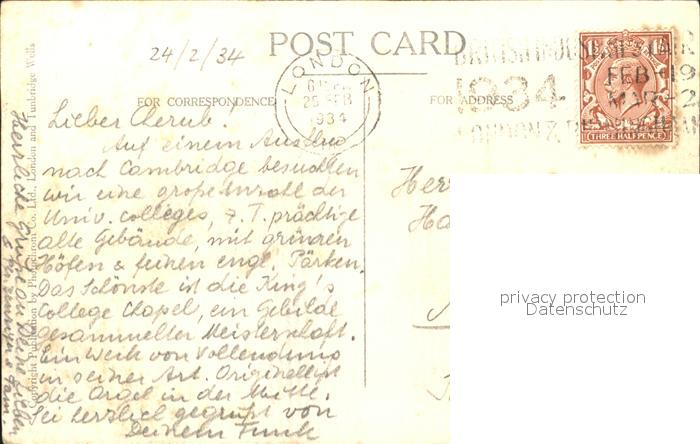 24/2/34
POST CARD
FOR CORRESPONDENCE
FOR ADDRESS
LONDON
25 FEB
1934
BRITISH INDUSTRIES FAIR
1934
FEB 19
MAR 2
LONDON & BIRMINGHAM
THREE HALF PENCE
Lieber Cherub!
Auf einem Ausflug
nach Cambridge besuchten
wir eine große Anzahl der
Univ. colleges, z. T. prächtige
alte Gebäude, mit grünen
Höfen & feinen engl. Pärken.
Das Schönste ist die King's
College Chapel, ein Gebilde
gesammelter Meisterschaft.
Ein Werk von Vollendung
in seiner Art. Originell ist
die Orgel in der Mitte.
Sei herzlich gegrüßt von
Deinem Funk
Herzliche Grüße an Deine Lieben
& Fam.
Copyright Publication by Photochrom Co. Ltd., London and Tunbridge Wells
Herr
privacy protection
Datenschutz